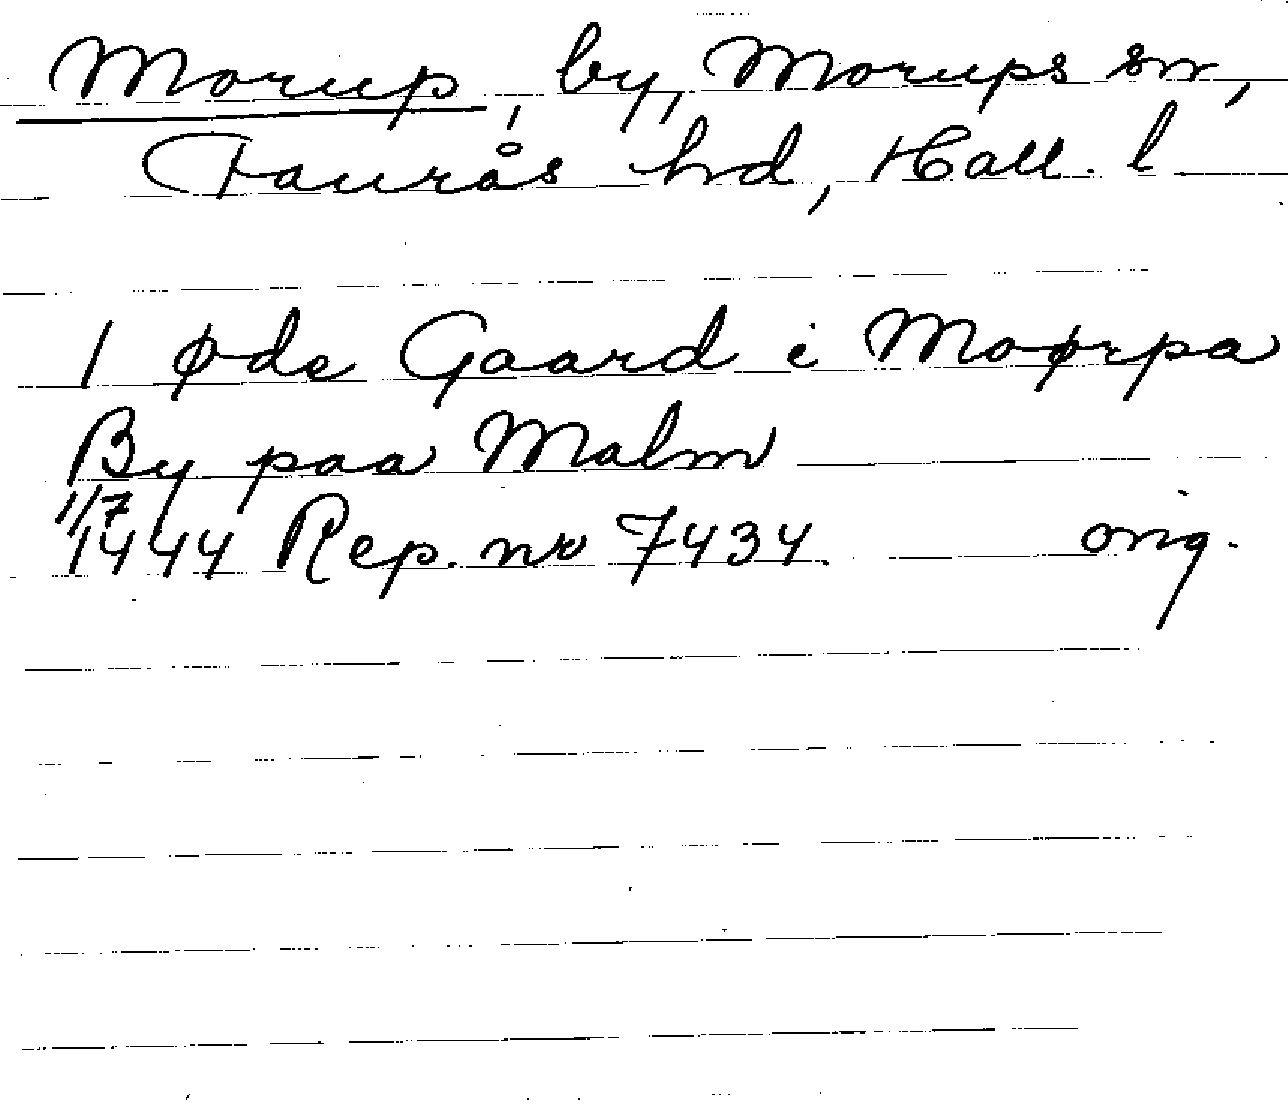 Morup, by, Morups sn,
Faurås hd, Hall. l
1 øde Gaard i Moørpa
By paa Malm
1/7
1444 Rep. nr 7434. orig.